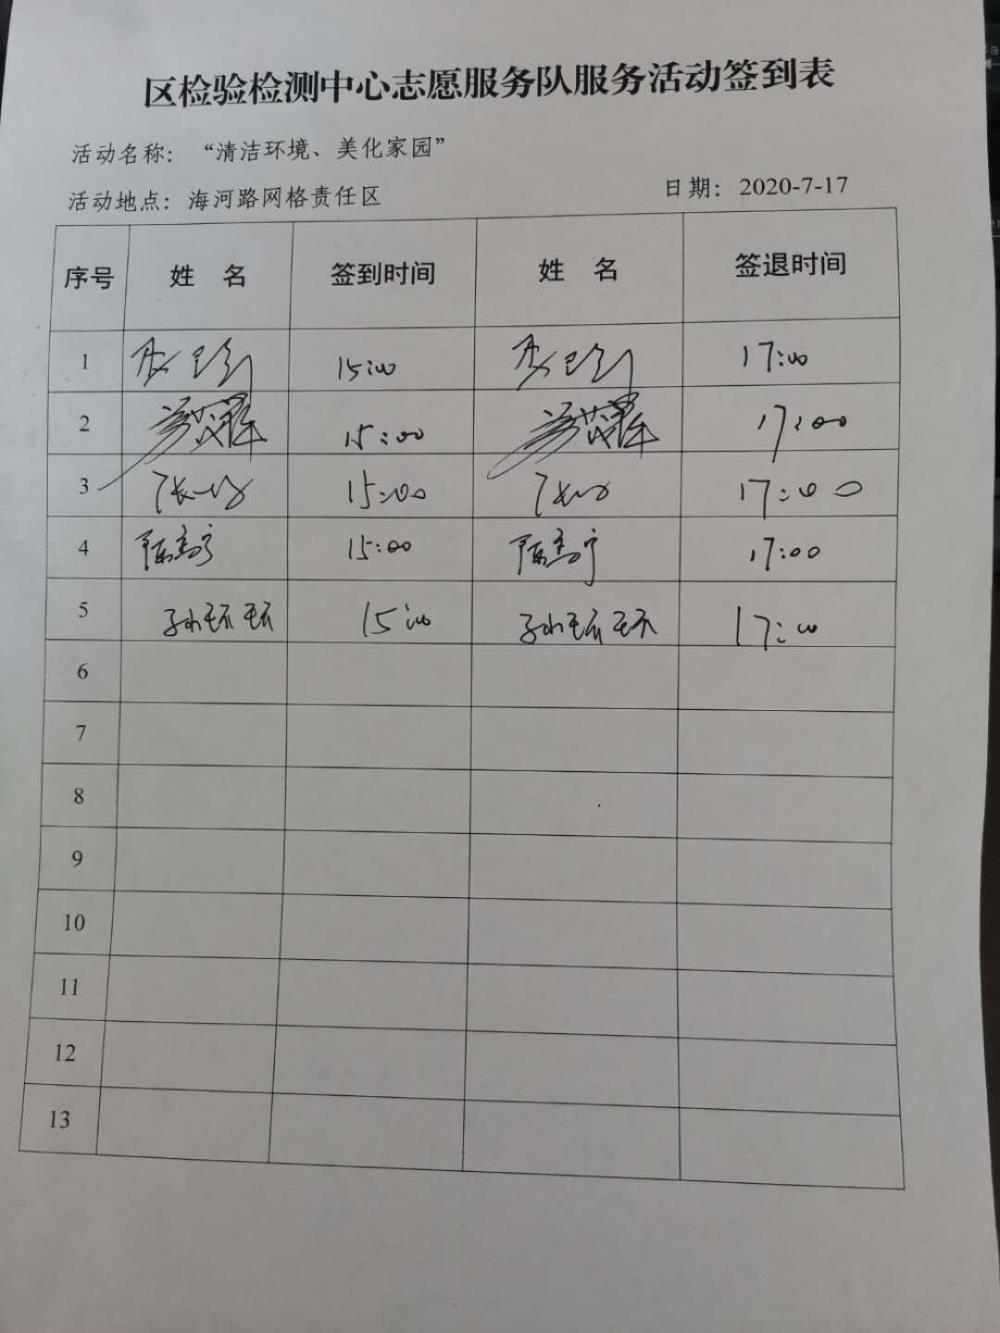 区检验检测中心志愿服务队服务活动签到表
活动名称：“清洁环境、美化家园”
活动地点：海河路网格责任区 日期：2020-7-17
序号 姓 名 签到时间 姓 名 签退时间
1 15:00 17:00
2 15:00 17:00
3 15:00 17:00
4 15:00 17:00
5 15:00 17:00
6
7
8
9
10
11
12
13